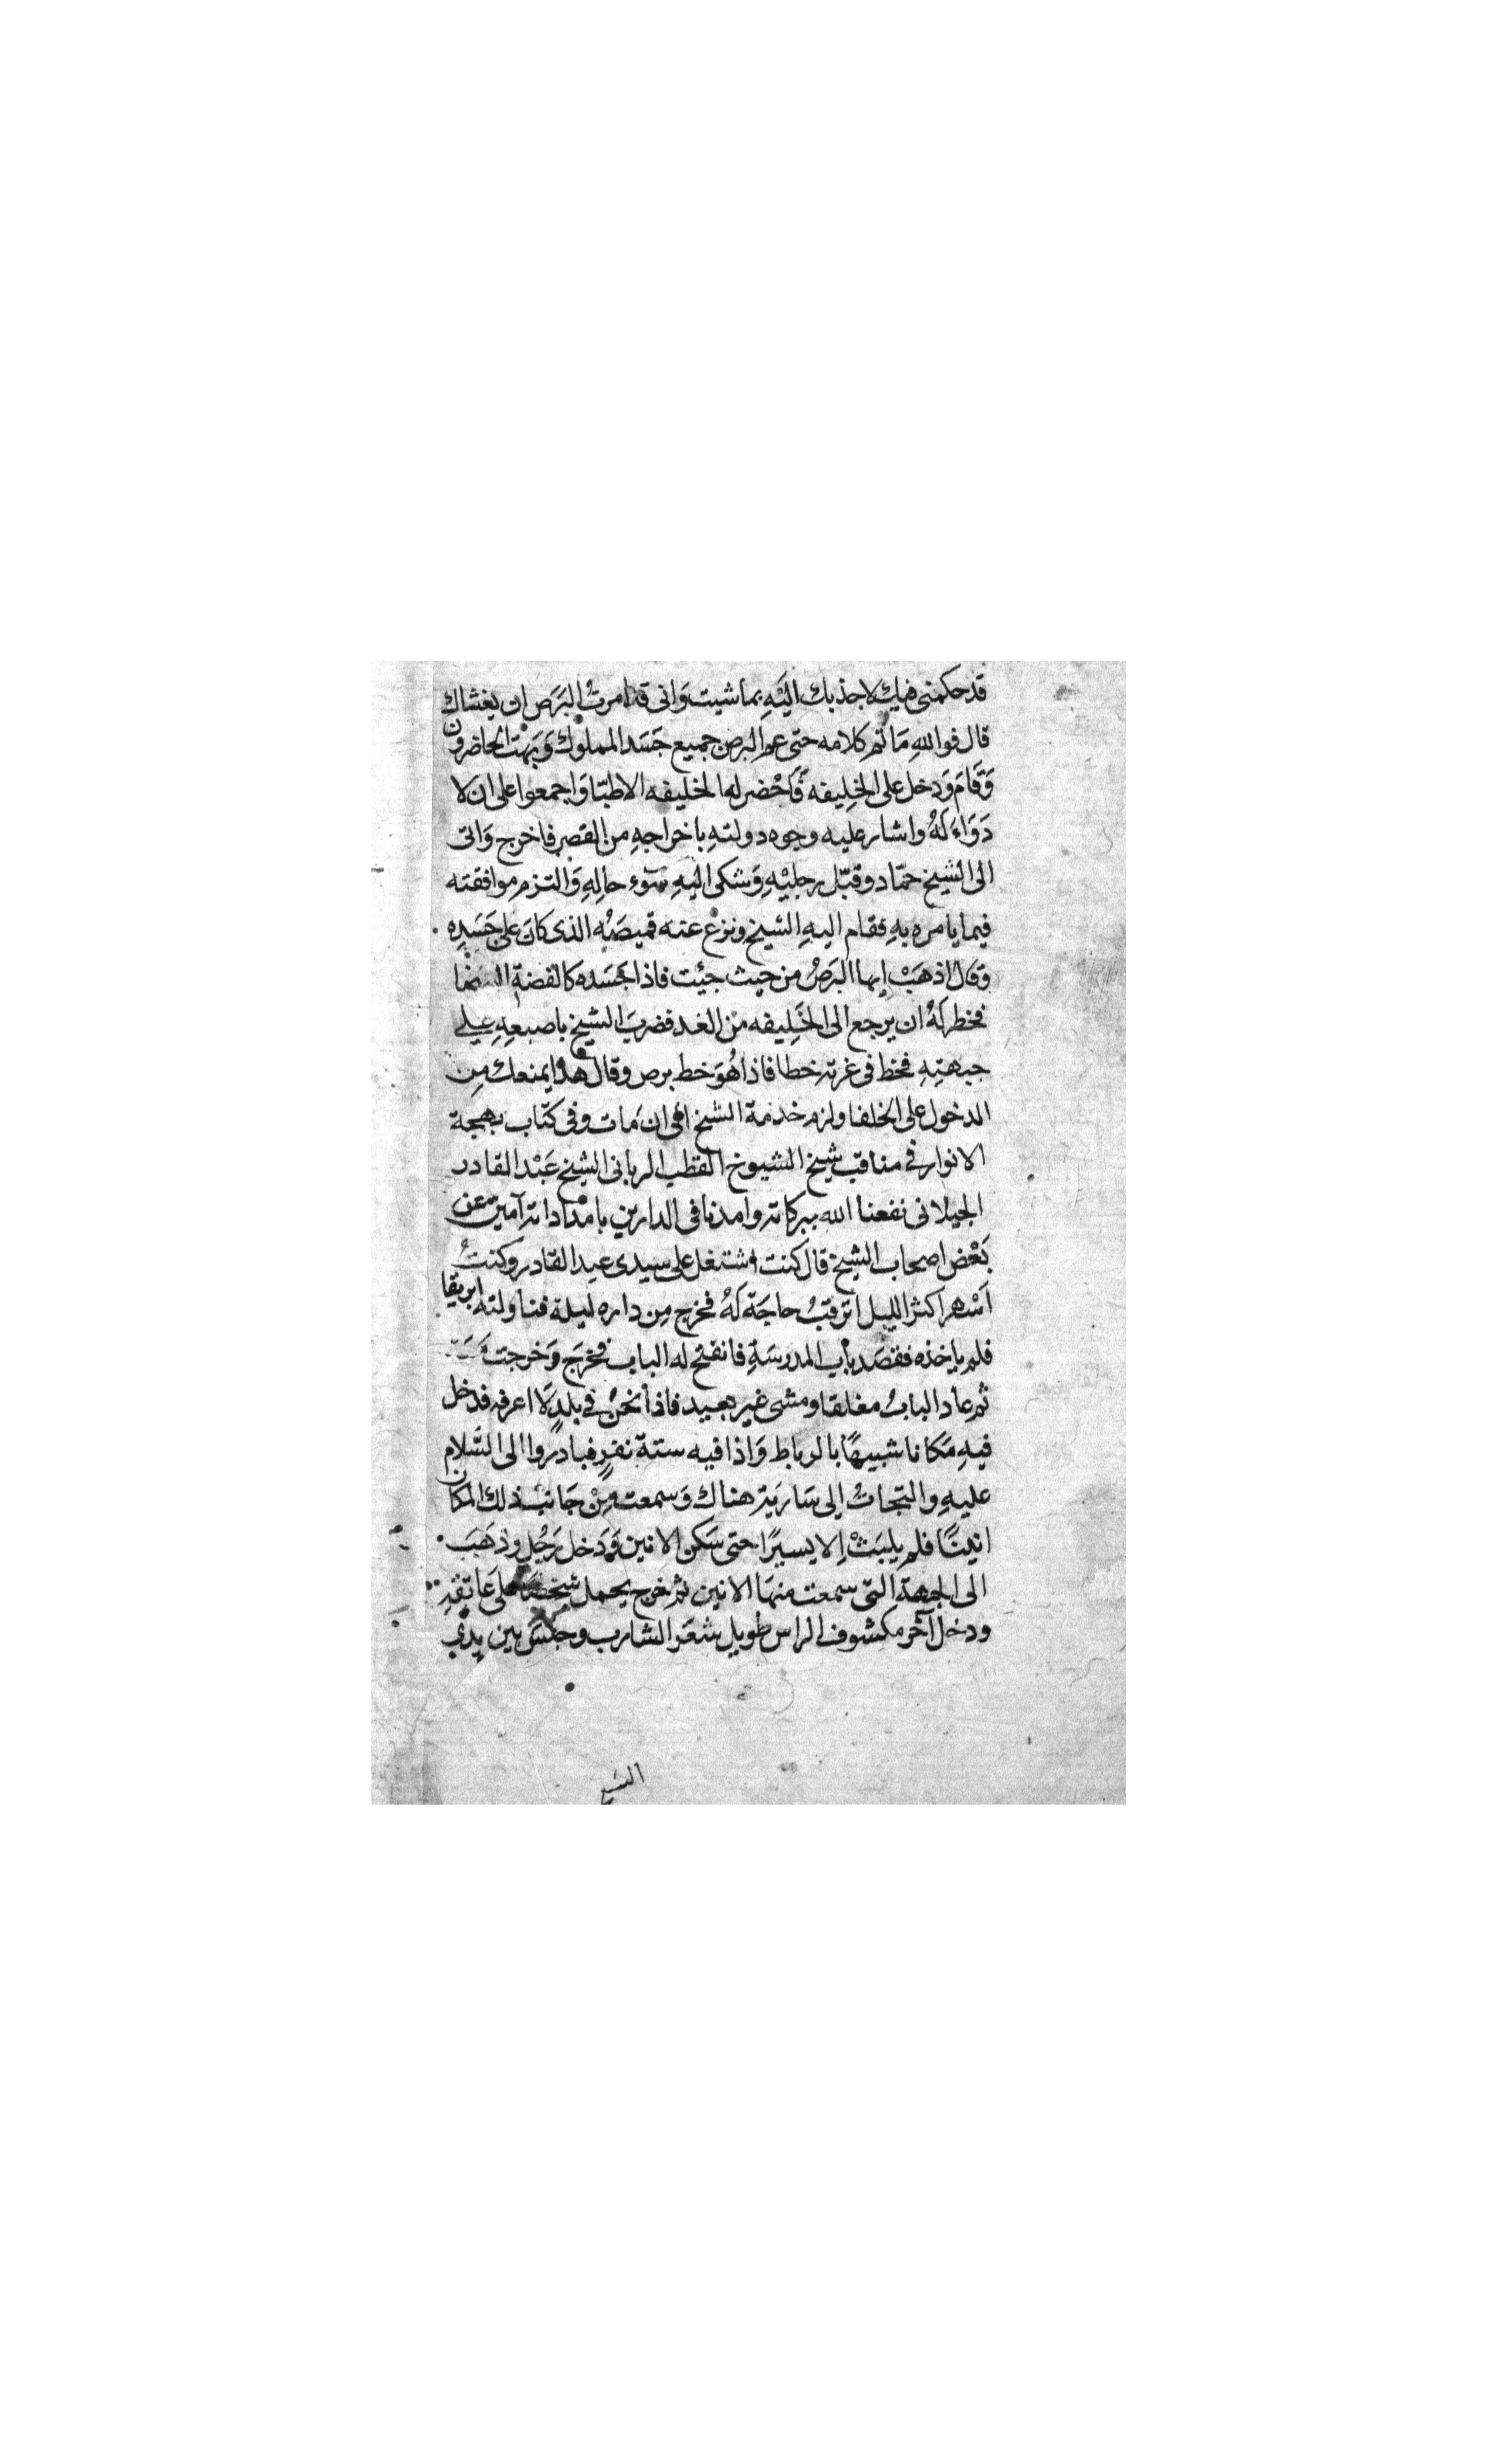 قد حكمنى فيك لاجذبك اليَهِ بما شيت وَانى قد امرتُ البَرَص ان يغشاك
قال فوالله مَا تم كلامه حتى عم البرص جميع جَسَد المملوك وَبَهت الحاضرون
وَقَامَ وَدخل على الخِليفه فَاَحْضر له الخليفه الاطبّا وَاجمعوا على ان لا
دَوَاءَ لَهُ واشار عليه وجوه دولتهِ باخراجهِ من القصر فاخرج وَاتى
الى الشيخ حمّاد وقبّل رجليْهِ وَشكى اليهِ سُوء حالِهِ وَالتزم موافقته
فيما يامره بهِ فقام اليهِ الشيخ ونزع عنه قميصَهُ الذى كانَ على جَسَدِه
وَقال اذهَبْ ايها البَرَصُ من حيث جئت فاذا جَسَده كالفضة
فخطر لَهُ ان يرجع الى الخَلِيفه من الغد فضربَ الشيخ باصبعهِ على
جبهتِهِ فخط فى غرته خطا فاذا هُوَ خط برص وقال هذا يمنعك مِن
الدخول على الخلفا ولزم خدمة الشيخ الى ان مَات وفى كتاب بهجة
الانوار فى مناقب شيخ الشيوخ القطب الربانى الشيخ عَبْد القادر
الجيلانى نفعنا الله ببركاته وامدنا فى الدارين بامداداته آمين عن
بَعْض اصحاب الشيخ قال كنت اشتغل على سيدى عبد القادر وكنتُ
اَسْهر اكثر الليل اترقبُ حاجَة لَهُ فخرج مِن داره ليلة فناولته ابريقا
فلم ياخذه فقصَد بَاب المدرسَةِ فانفتح له الباب فخرَج وَخرجت
ثم عاد البابُ مغلقا ومشى غير بعيد فاذا نحنُ فى بلدٍ لا اعرفه فدخل
فيهِ مَكانا شبيهًا بالرباط وَاذا فيه ستة نفرٍ فبادروا الى السَّلام
عليهِ والتجاتُ إلى سَاريَة هناك وَسمعت مِنْ جَانب ذلك المكان
انينًا فلم يلبَثْ اِلا يسيرًا حتى سَكن الانين وَدَخل رَجُل وَذهَبَ
الى الجهة التى سمعت منهَا الانين ثم خرج يحمل شخصًا على عَاتِقِهِ
ودخل آخر مكشوف الراس طويل شعَر الشارب وجلسَ بين يدَي
الشيخ